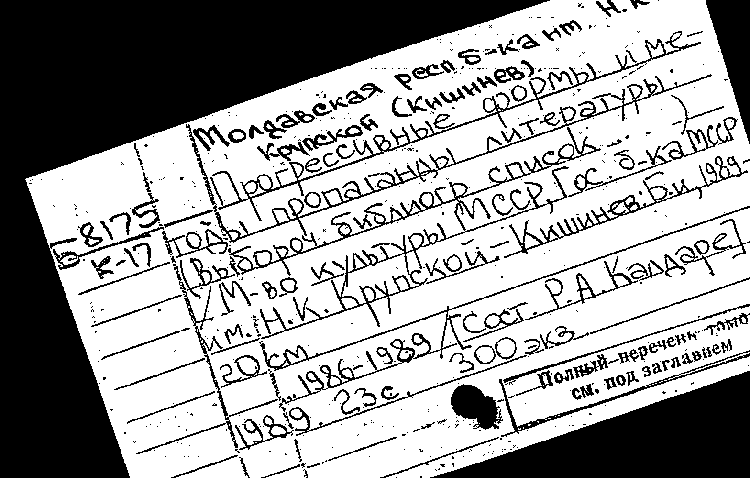 Молдавская респ. б-ка им. Н.К.
Крупской (Кишинев)
Прогрессивные формы и ме-
тоды пропаганды литературы:
(Выбороч. библиогр список ... )
Б 8175
К-17
/ М-во культуры МССР, Гос. б-ка МССР
им. Н.К. Крупской.- Кишинев: Б.и, 1989-
20 см.
... 1986-1989 / [Сост. Р.А. Калдаре]
1989. 23 с. 300 экз
Полный перечень томо
см. под заглавием